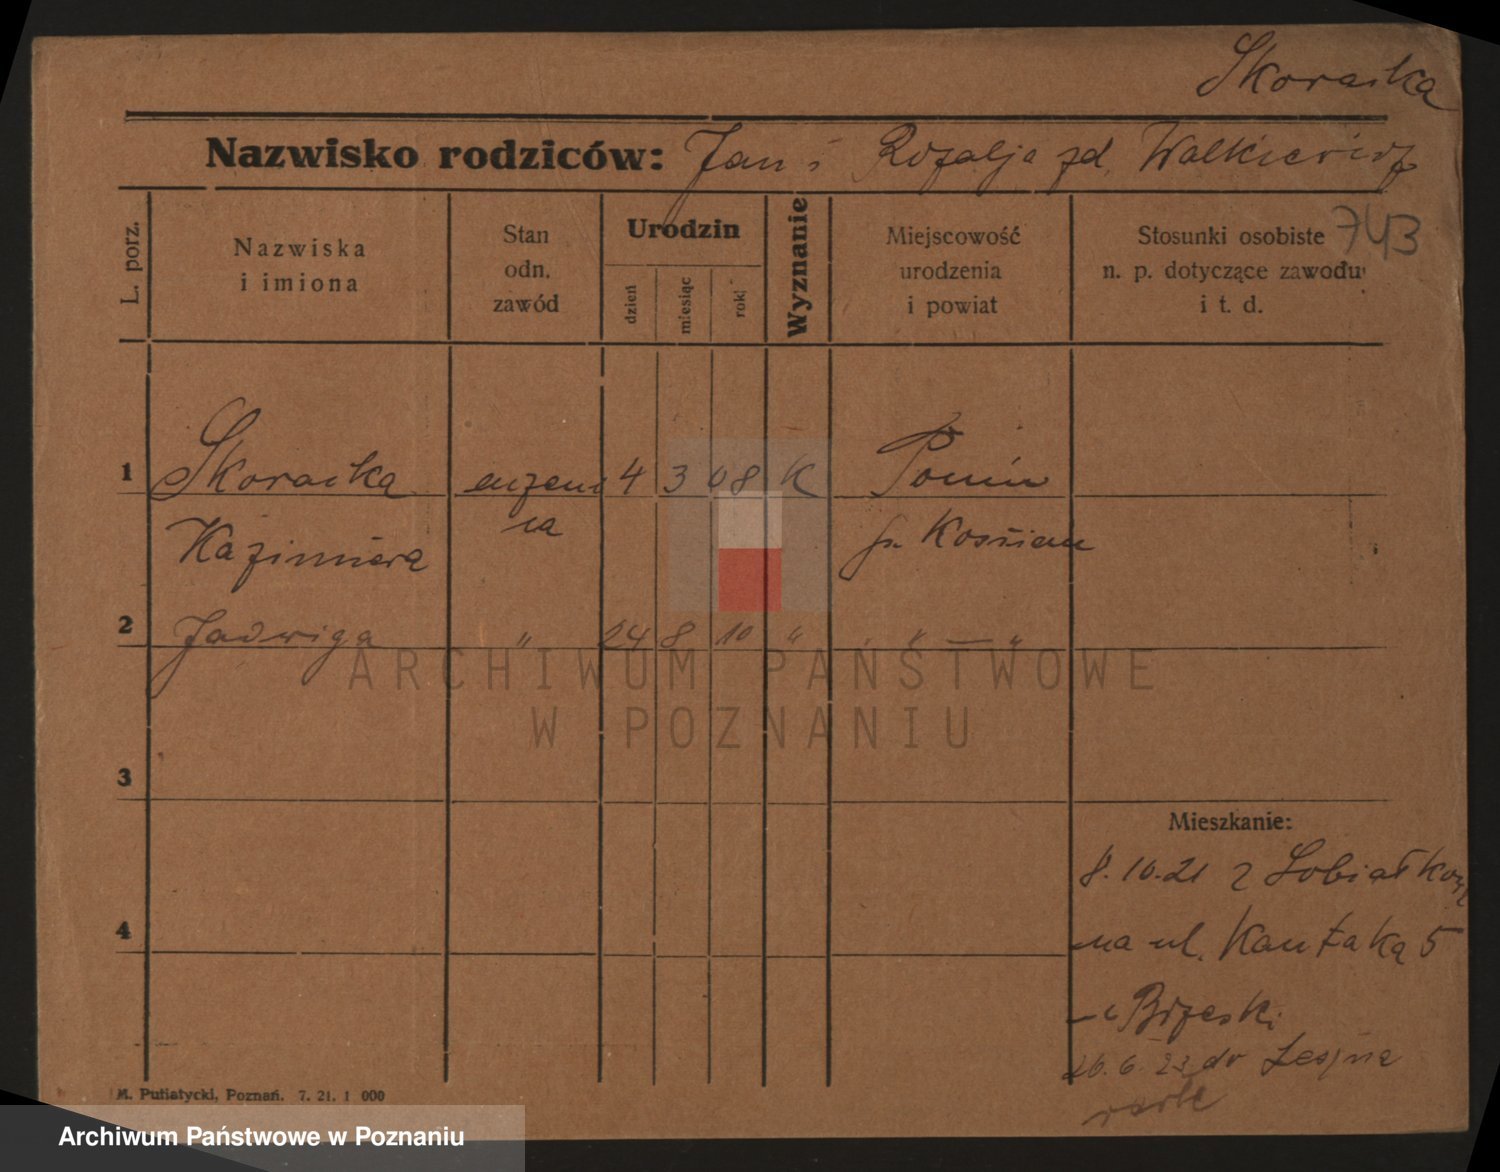 Skoracka
Nazwisko rodziców: Jan i Rozalja zd. Walkiewicz
743
L. porz.
Nazwiska
i imiona
Stan
odn.
zawód
Urodzin
dzień
miesiąc
rok
Wyznanie
Miejscowość
urodzenia
i powiat
Stosunki osobiste
n. p. dotyczące zawodu
i t. d.
1 Skoracka uczenni 4 3 08 K Ponin
Kazimiera ca p. Kościan
2 Jadwiga " 24 8 10 " " — "
3
4
Mieszkanie:
8.10.21 z Łobiałkowy
na ul. Kantaką 5
u Brzeski
26.6.23 do
M. Putiatycki, Poznań. 7. 21. 1 000
ARCHIWUM PAŃSTWOWE
W POZNANIU
Archiwum Państwowe w Poznaniu